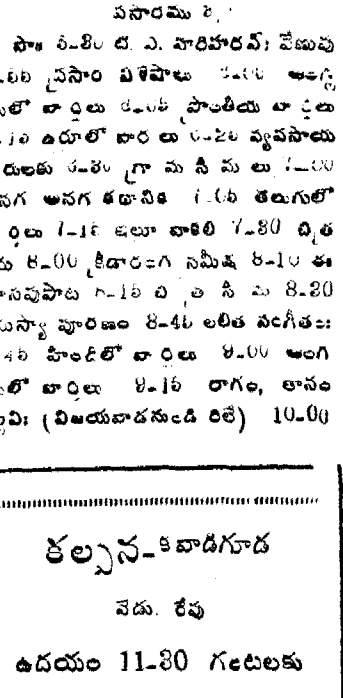 పసారము
సా॥ 5-30 టి. ఎ. హరిహరన్: వేణువు
ప్రసార విశేషాలు 6-00 ఆంగ్ల
లో వార్తలు 6-05 ప్రాంతీయ వార్తలు
ఉరూలో వార్తలు 6-20 వ్యవసాయ
దులకు 6-30 గ్రామసీమలు 7-00
నగ అనగ కథానిక 7-05 తెలుగులో
ర్తలు 7-15 ఇలూ వాకిలి 7-30 చిత్ర
8-00 క్రీడారంగ సమీక్ష 8-10 ఈ
సవుపాట 8-15 చిత్రసీమ 8-30
పూరణం 8-45 లలిత సంగీతం:
45 హిందీలో వార్తలు 9-00 ఆంగ
లో వార్తలు 9-15 రాగం, తానం
వి: (విజయవాడనుండి రిలే) 10-00
కల్పన-కవాడిగూడ
నేడు. రేపు
ఉదయం 11-30 గంటలకు